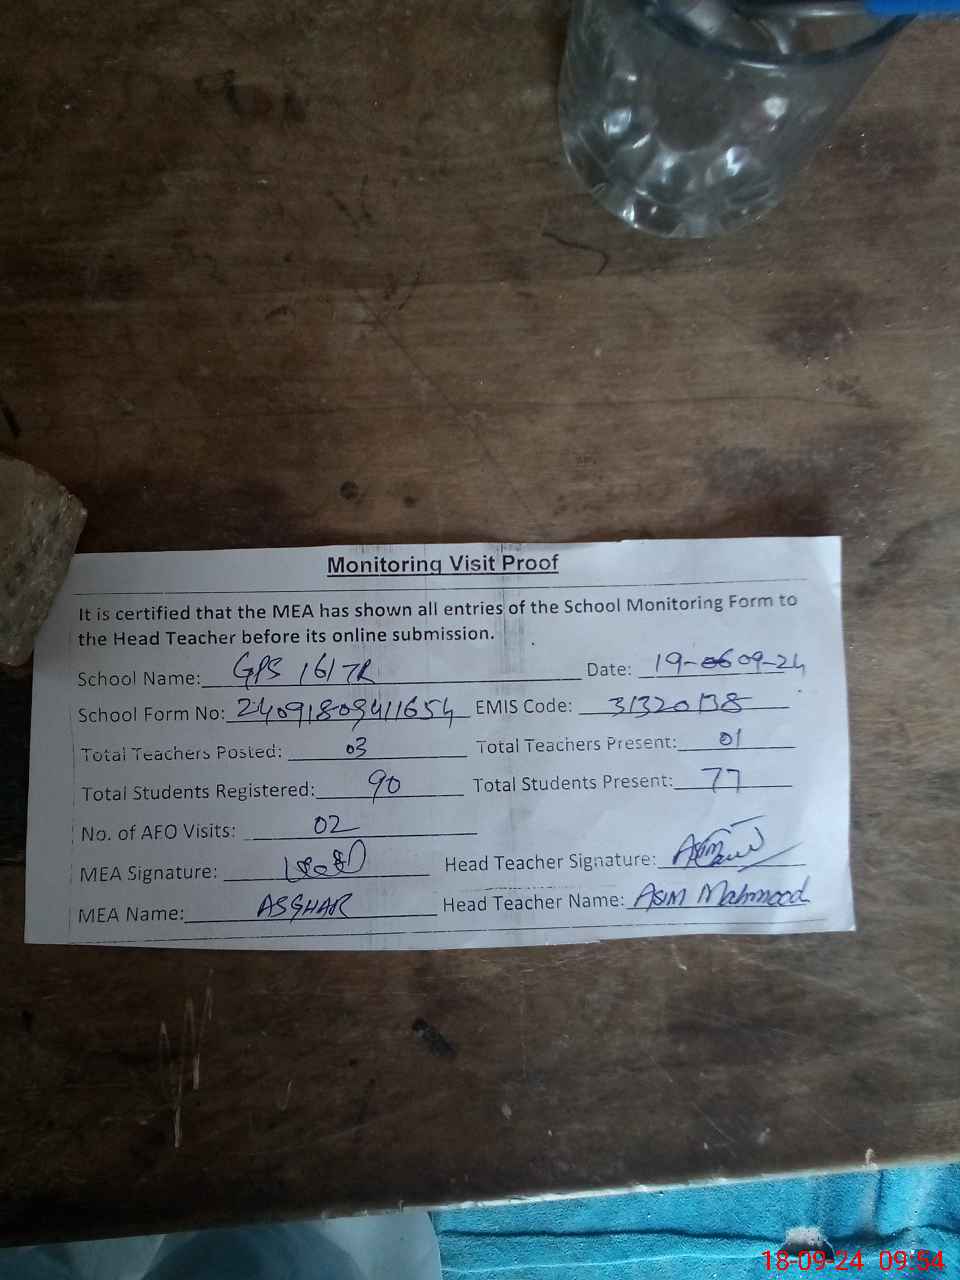 Monitoring Visit Proof
It is certified that the MEA has shown all entries of the School Monitoring Form to
the Head Teacher before its online submission.
School Name: GPS 161 7R Date: 19-09-24
School Form No: 24091809411654 EMIS Code: 31320138
Total Teachers Posted: 03 Total Teachers Present: 01
Total Students Registered: 90 Total Students Present: 77
No. of AEO Visits: 02
MEA Signature: Head Teacher Signature: Asim
MEA Name: ASGHAR Head Teacher Name: Asim Mahmood
18-09-24 09:54